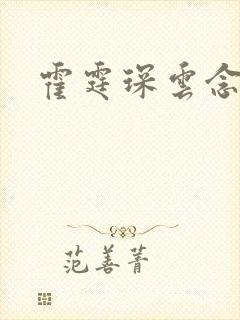 霍霆琛雲念
范善菁